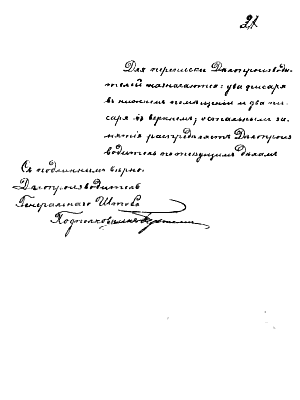 21
Для переписки Делопроизводи-
телей назначаются: два писаря
въ нижнемъ помѣщеніи и два пи-
саря въ верхнемъ; остальныя за-
нятія распредѣляетъ Делопроиз-
водитель по текущимъ дѣламъ
Съ подлиннымъ вѣрно:
Делопроизводитель
Генеральнаго Штаба
Подполковникъ